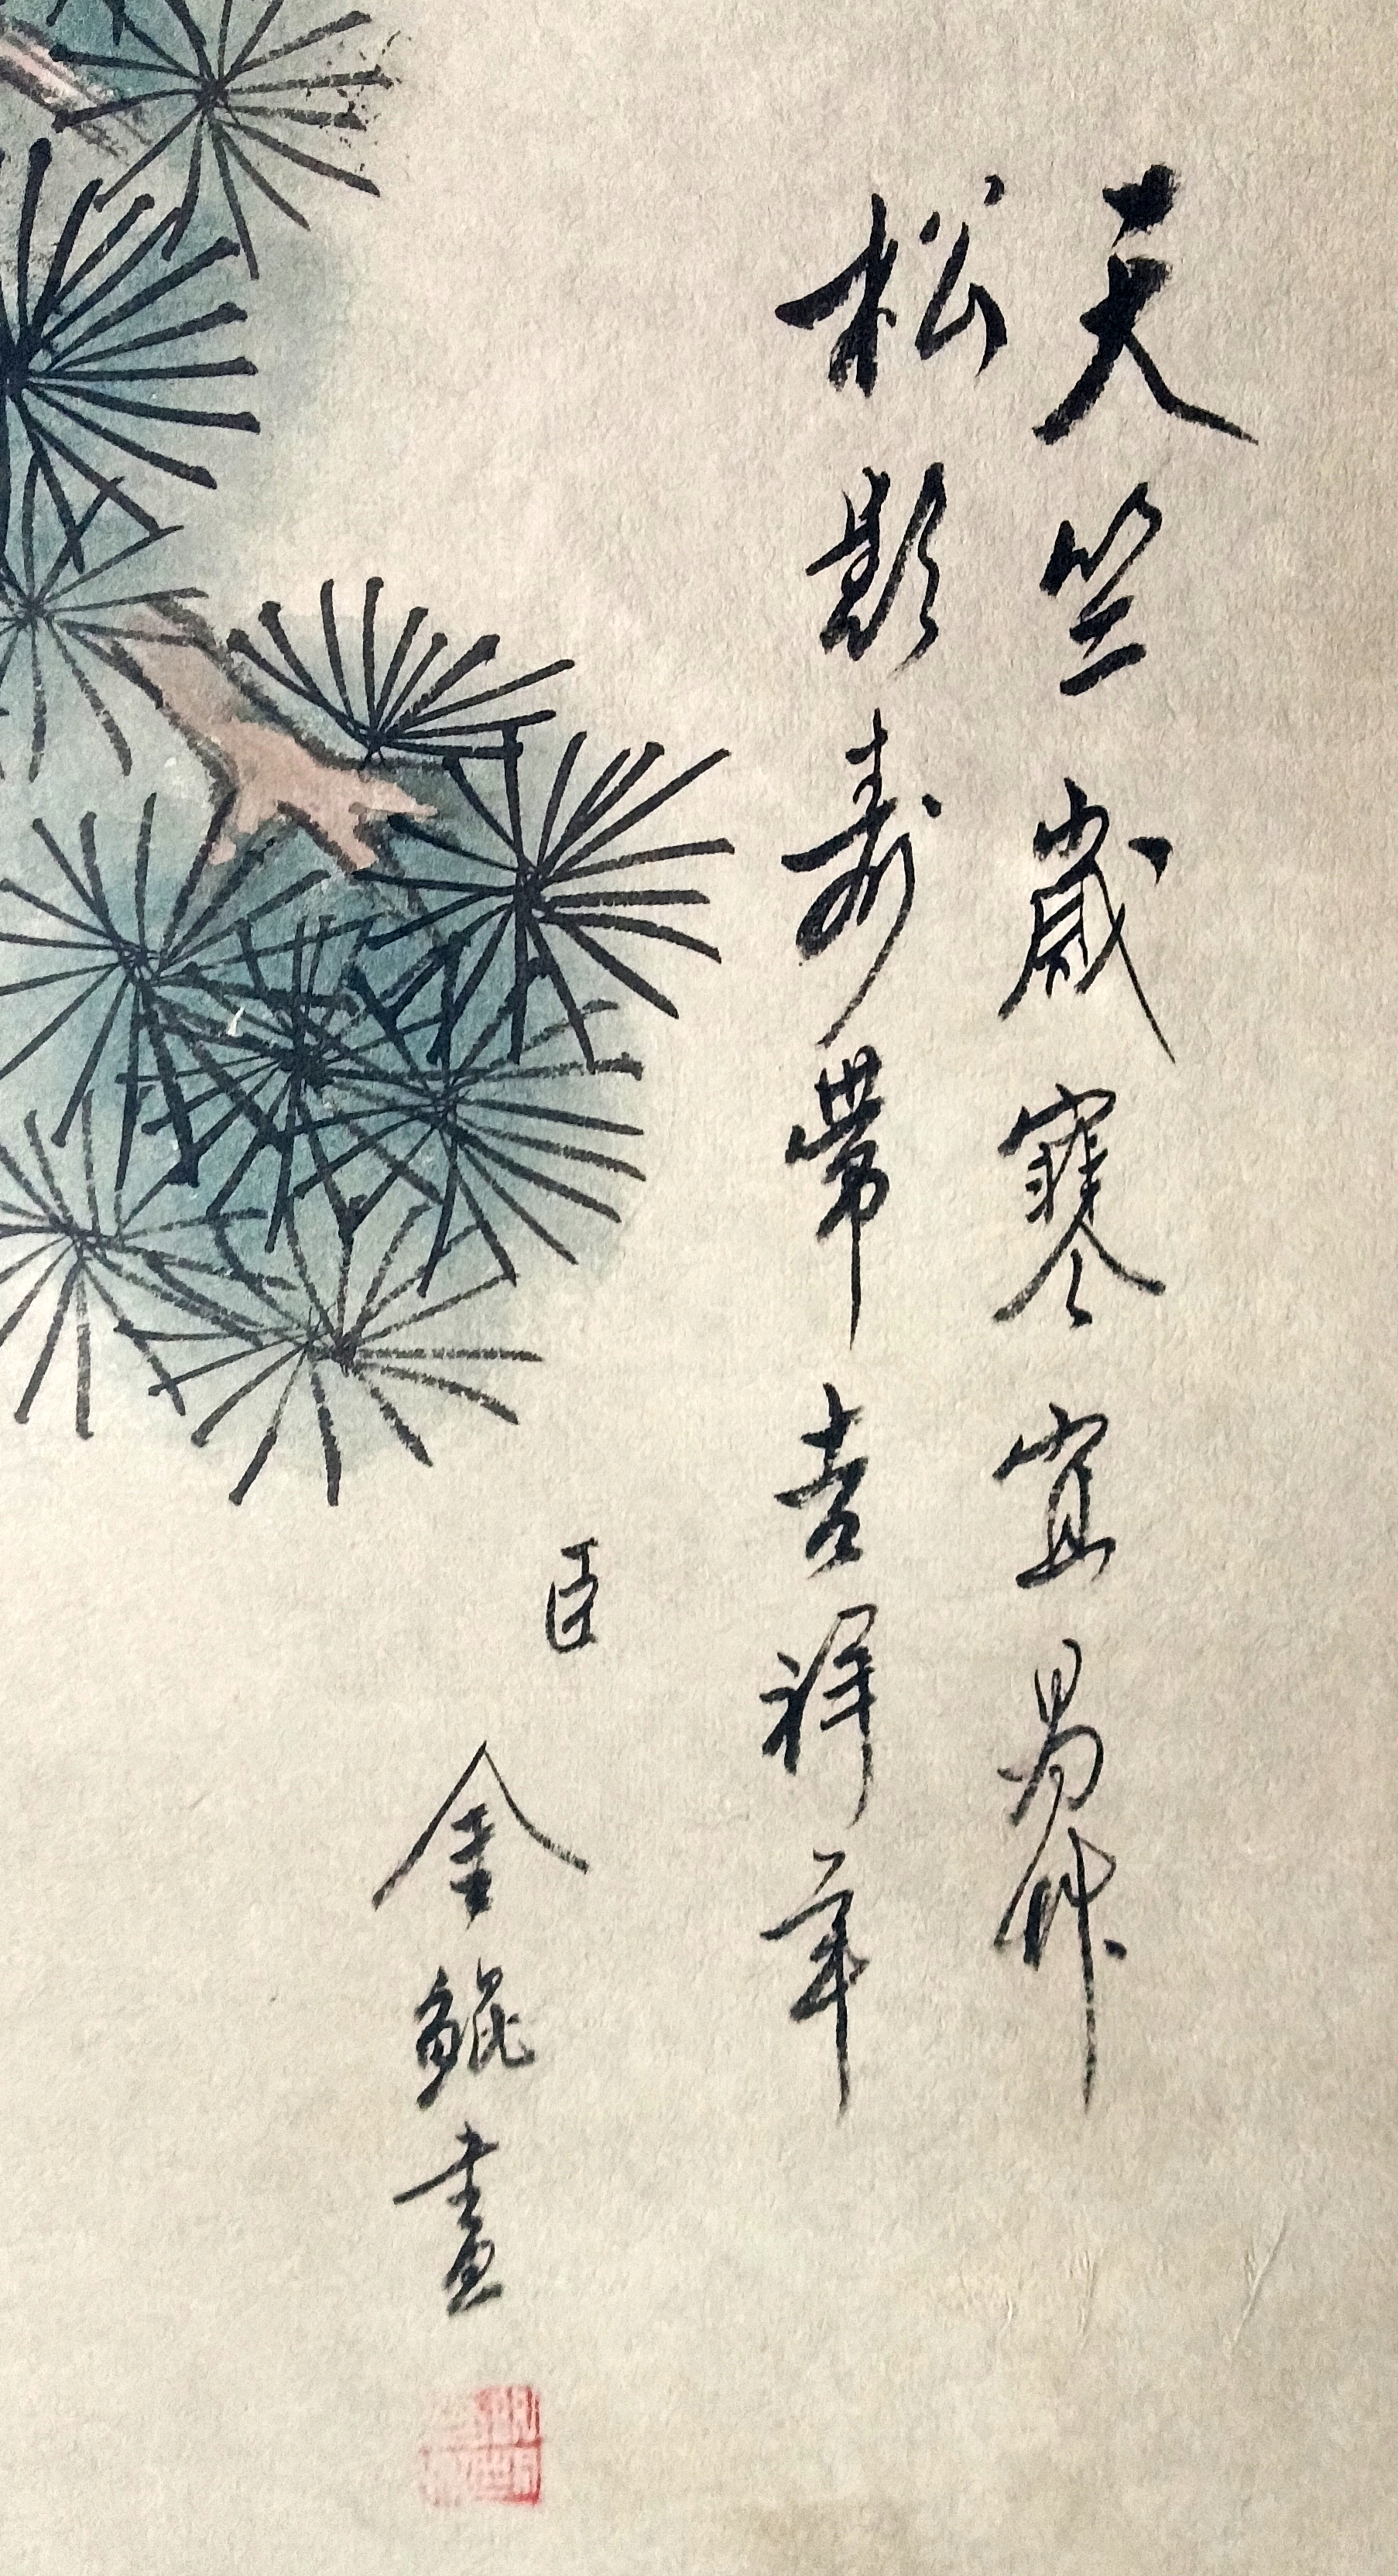 天竺歲寒宜易作
松影壽帶吉祥年
臣
金鯤畫